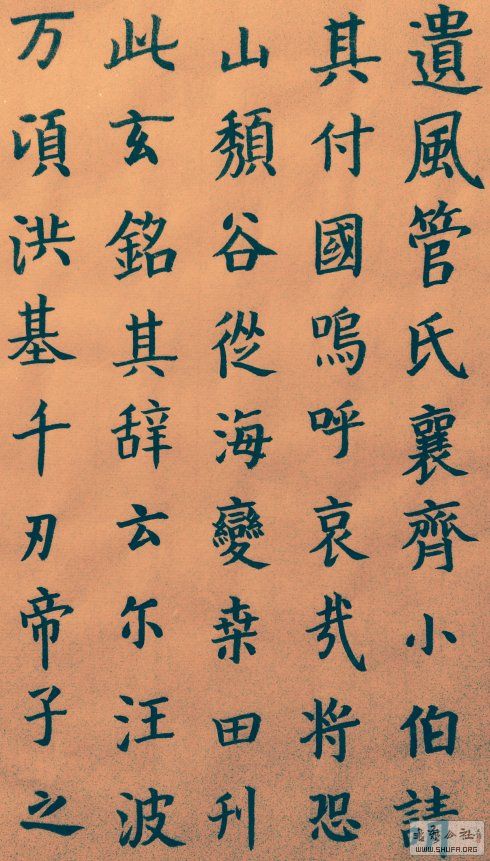 遺風管氏襄齊小伯請
其付國嗚呼哀哉将恐
山頹谷從海變桒田刊
此玄銘其辞云尔汪波
万頃洪基千刃帝子之
WWW.SHUFA.ORG